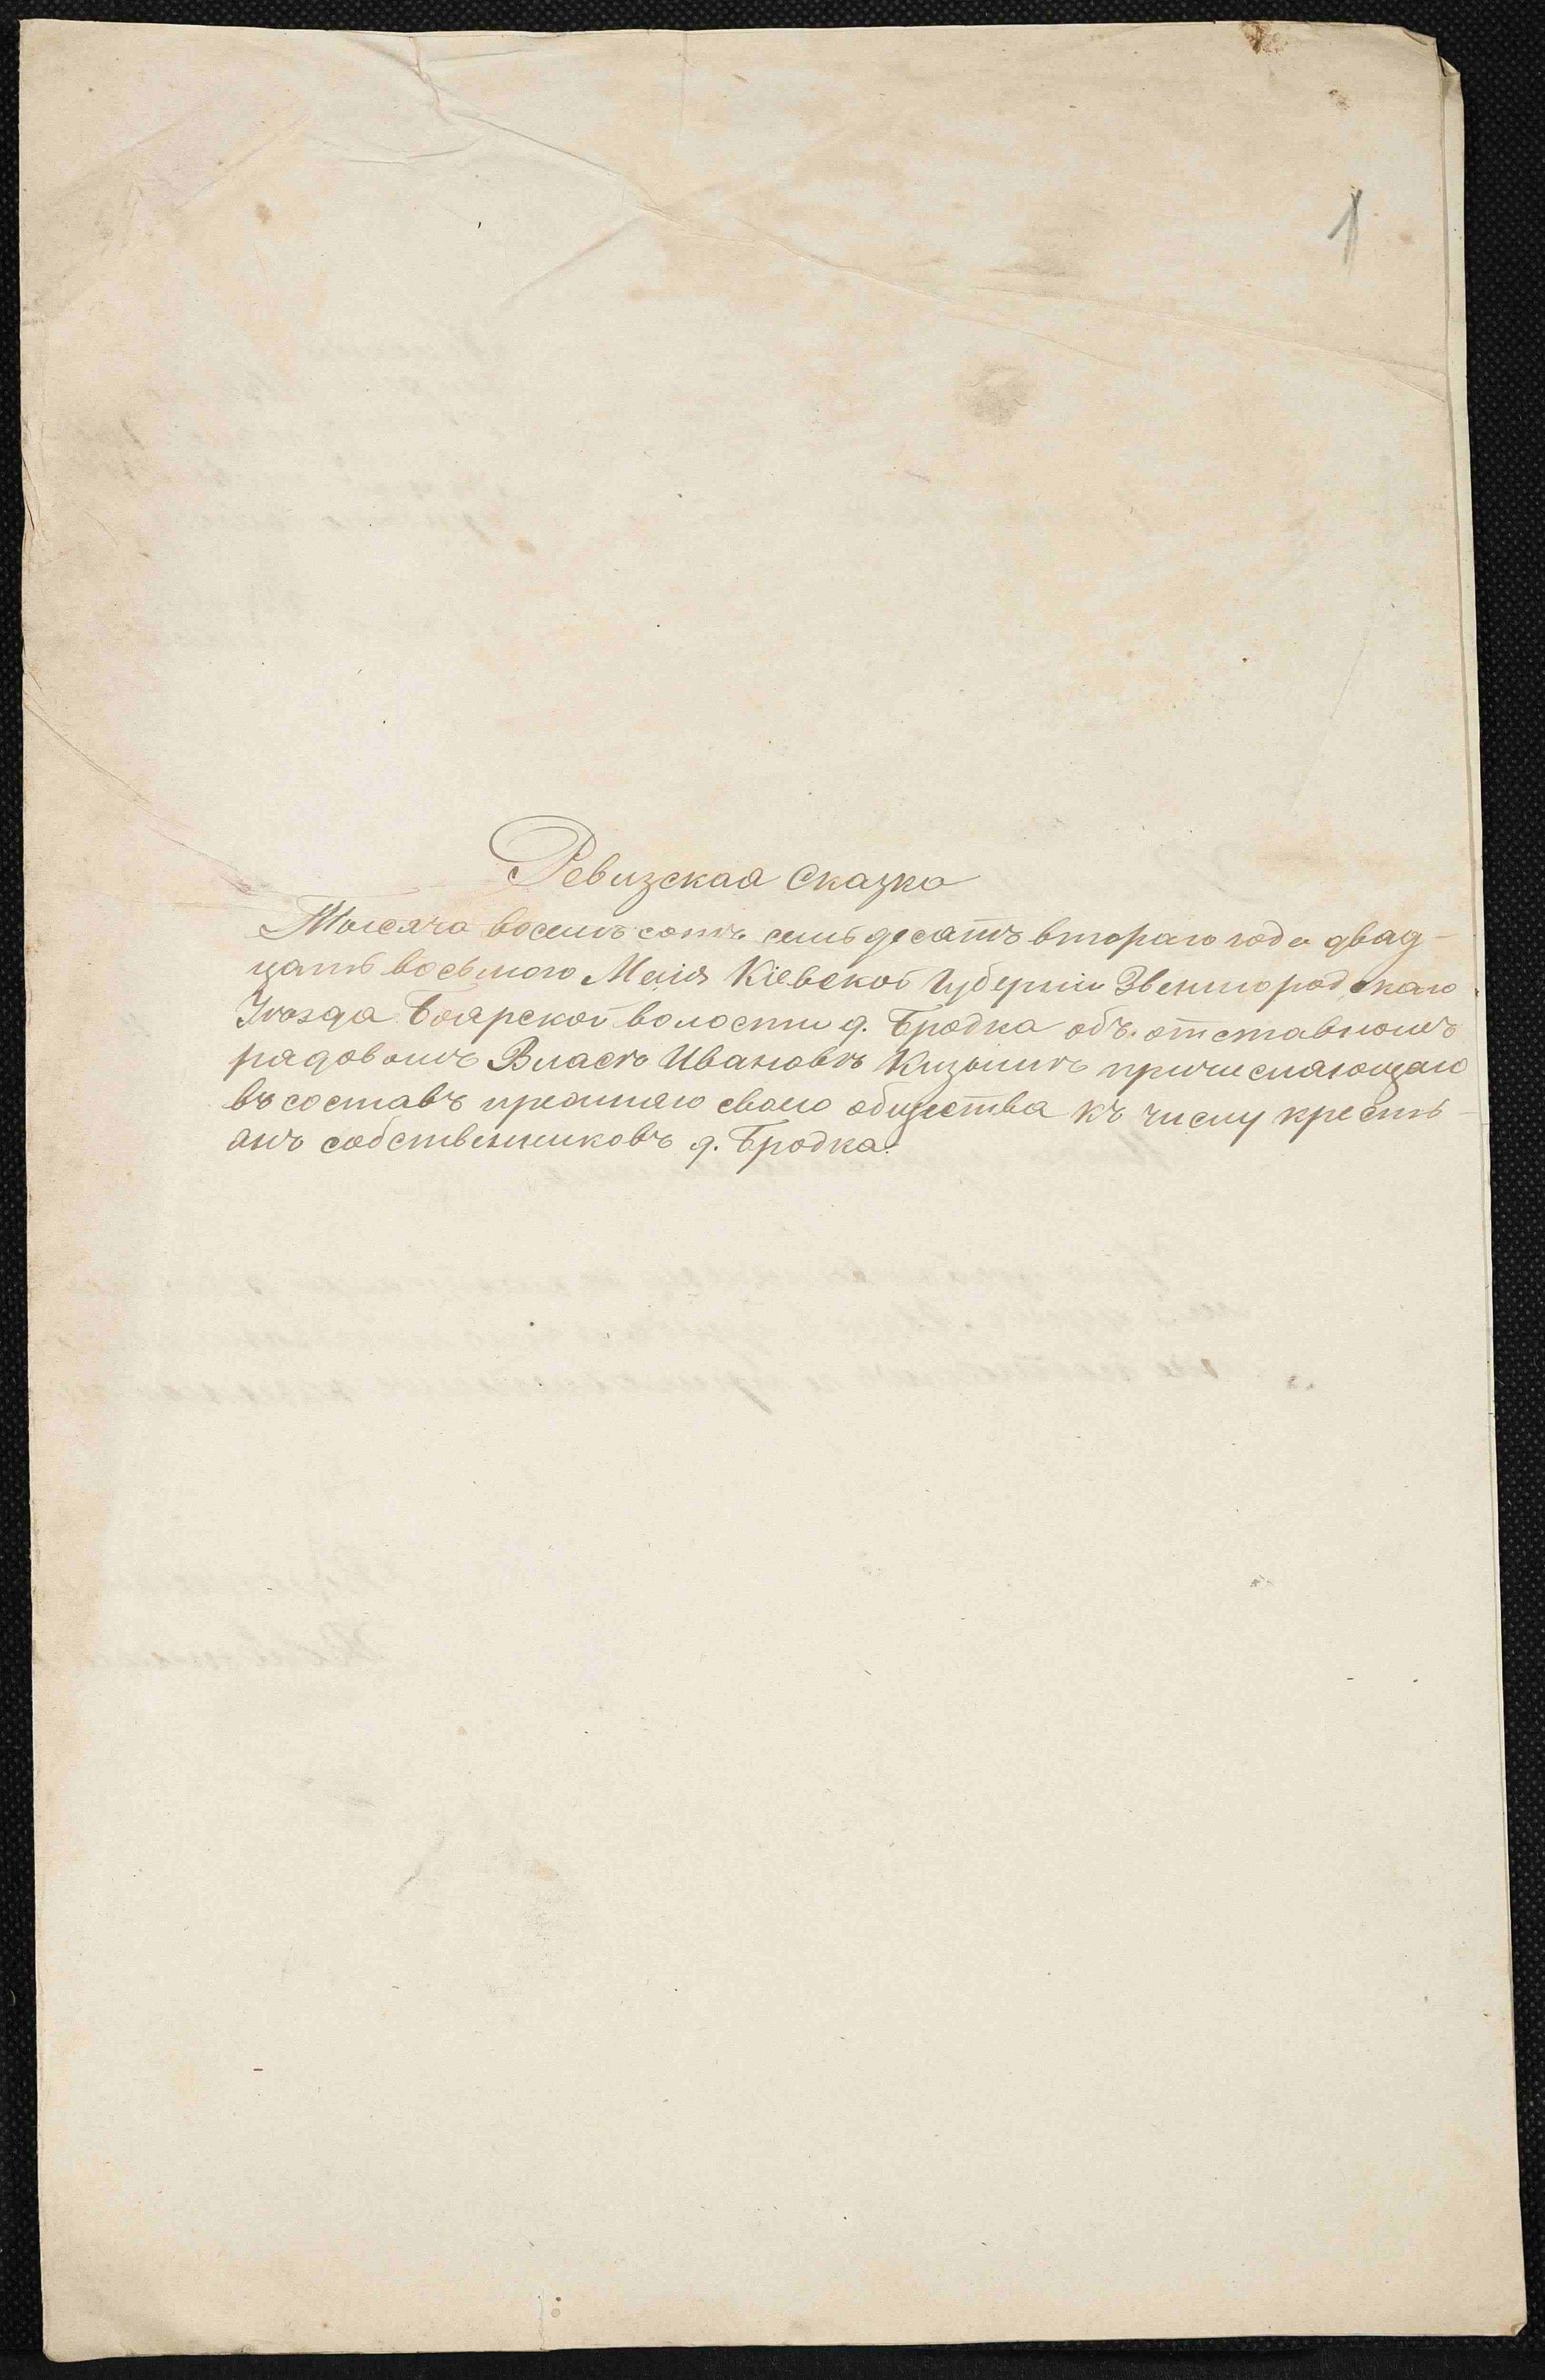 1
Ревизская Сказка
Тысяча восемь сотъ семьдесятъ втораго года двад-
цать восьмого Маия Кіевской Губерніи Звенигородскаго
Уезда Боярской волости д. Бродка объ отставномъ
рядовомъ Власъ Ивановъ причисляющаго
въ составъ своего общества къ числу кресть-
янъ собственниковъ д. Бродка.